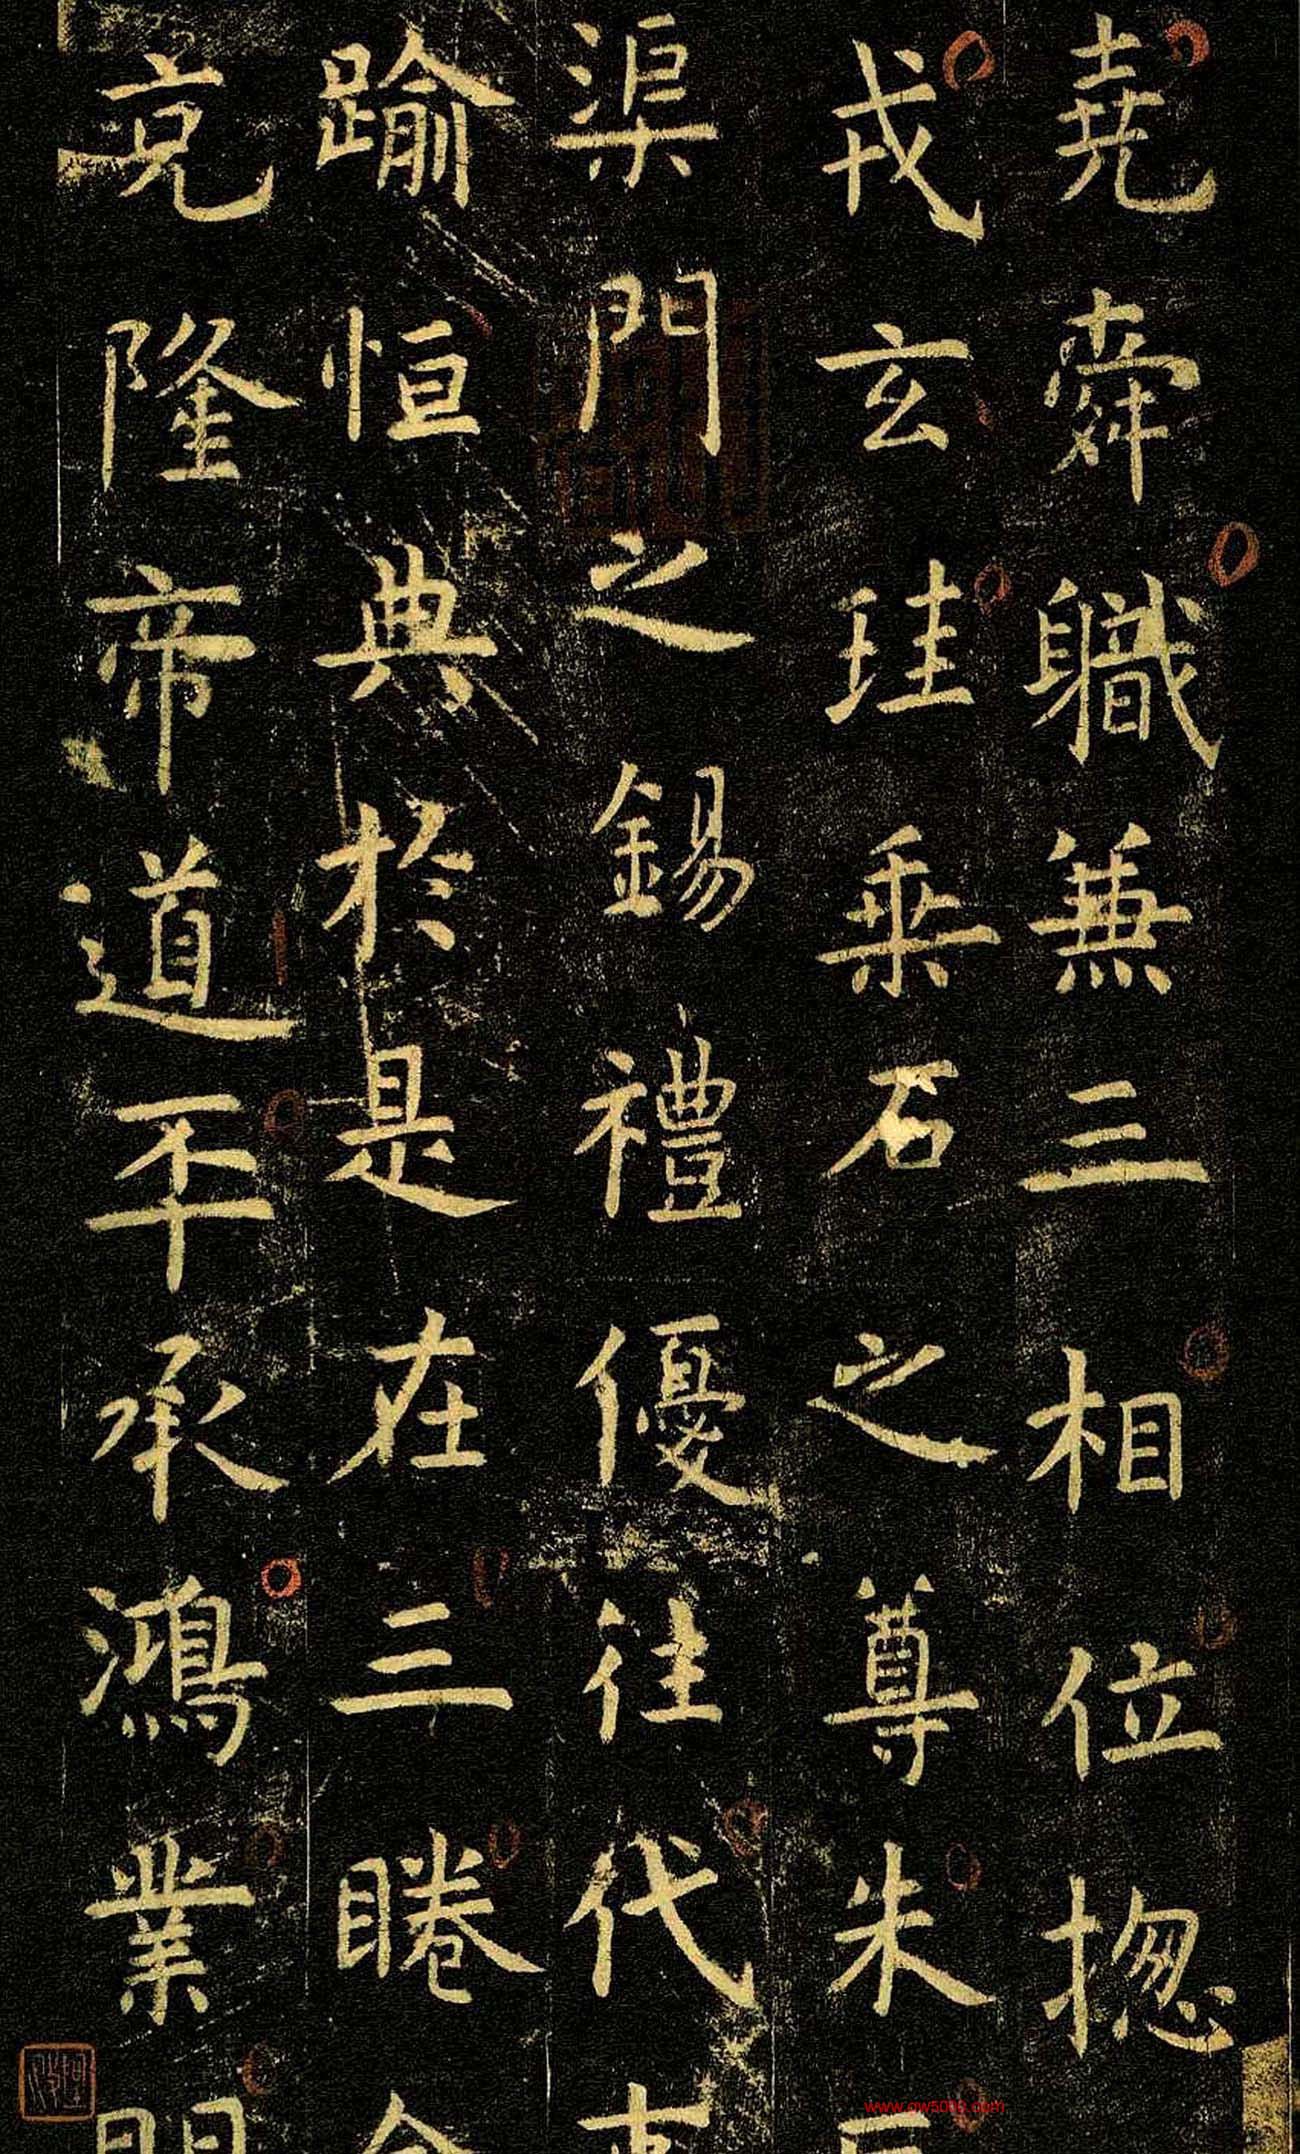 堯舜職兼三相位揔
戎玄珪乘石之尊朱
渠門之錫禮優往代
踰恒典於是在三眷命
克隆帝道丕承鴻業
www.gw5000.com